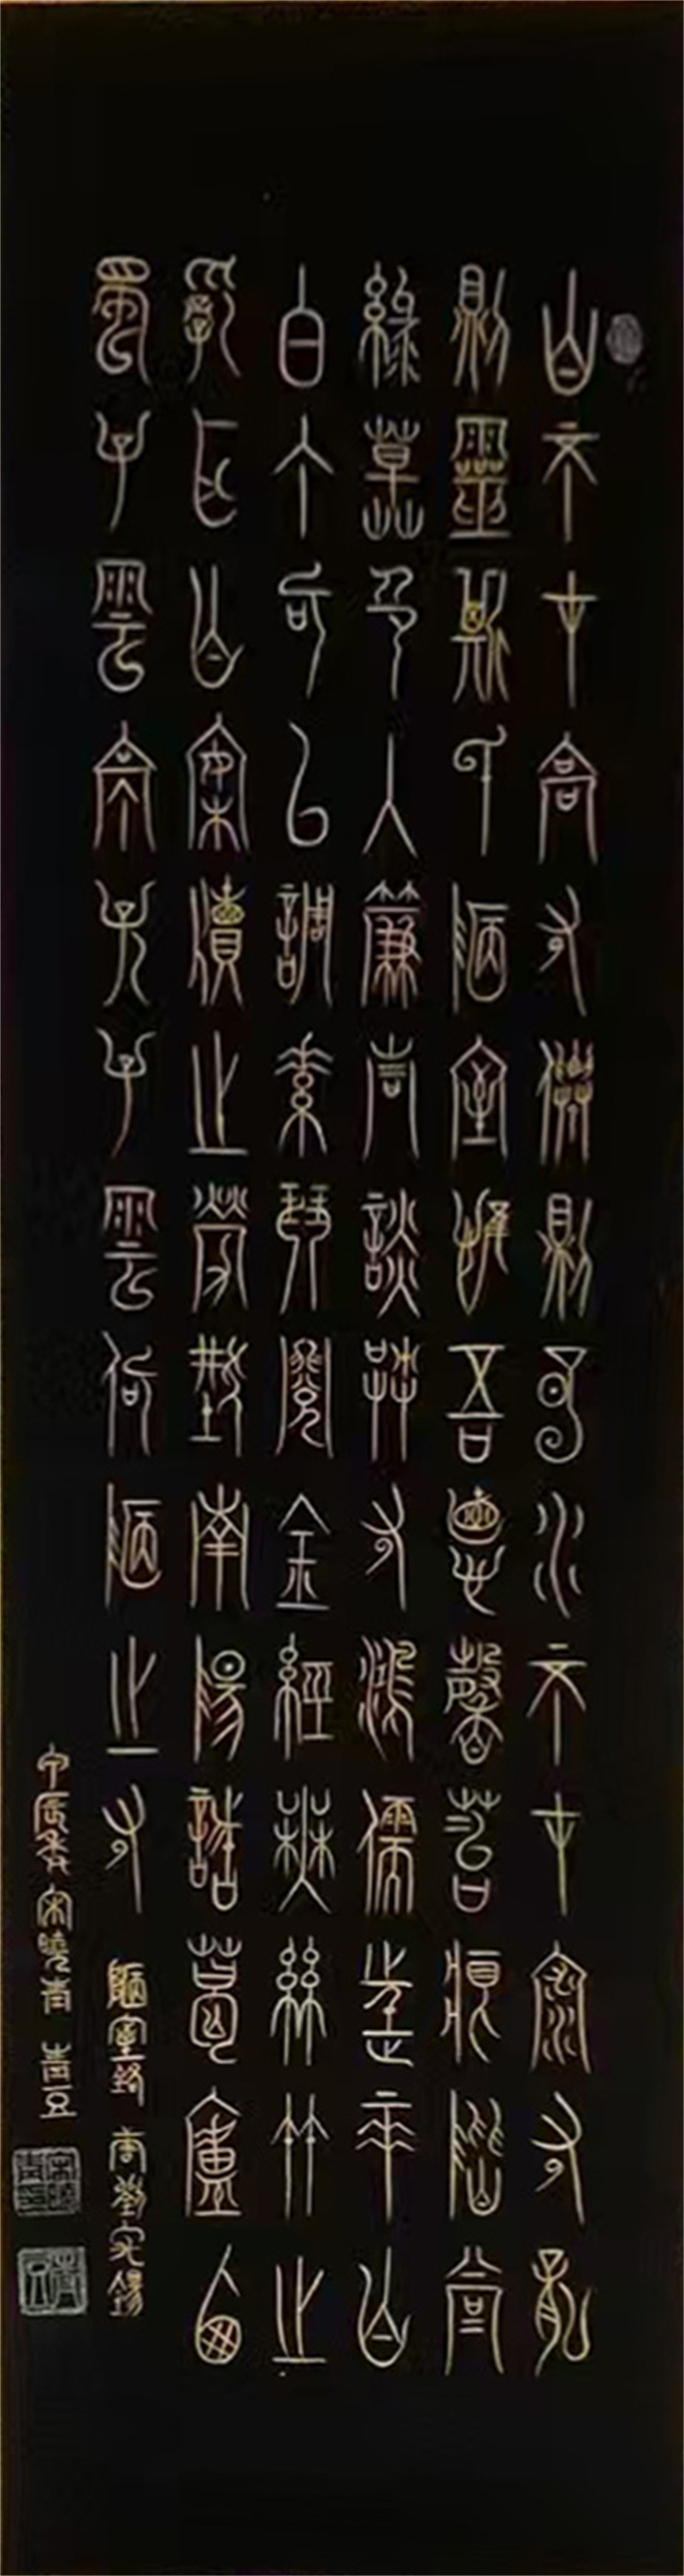 山不在高有僊則名水不在深有龍
則靈斯是陋室惟吾德馨苔痕階上
綠草色入簾青談笑有鴻儒往來無
白丁可以調素琴閱金經無絲竹之
亂耳無案牘之勞形南陽諸葛廬西
蜀子雲亭孔子雲何陋之有
陋室銘 唐劉禹錫
宋曉青